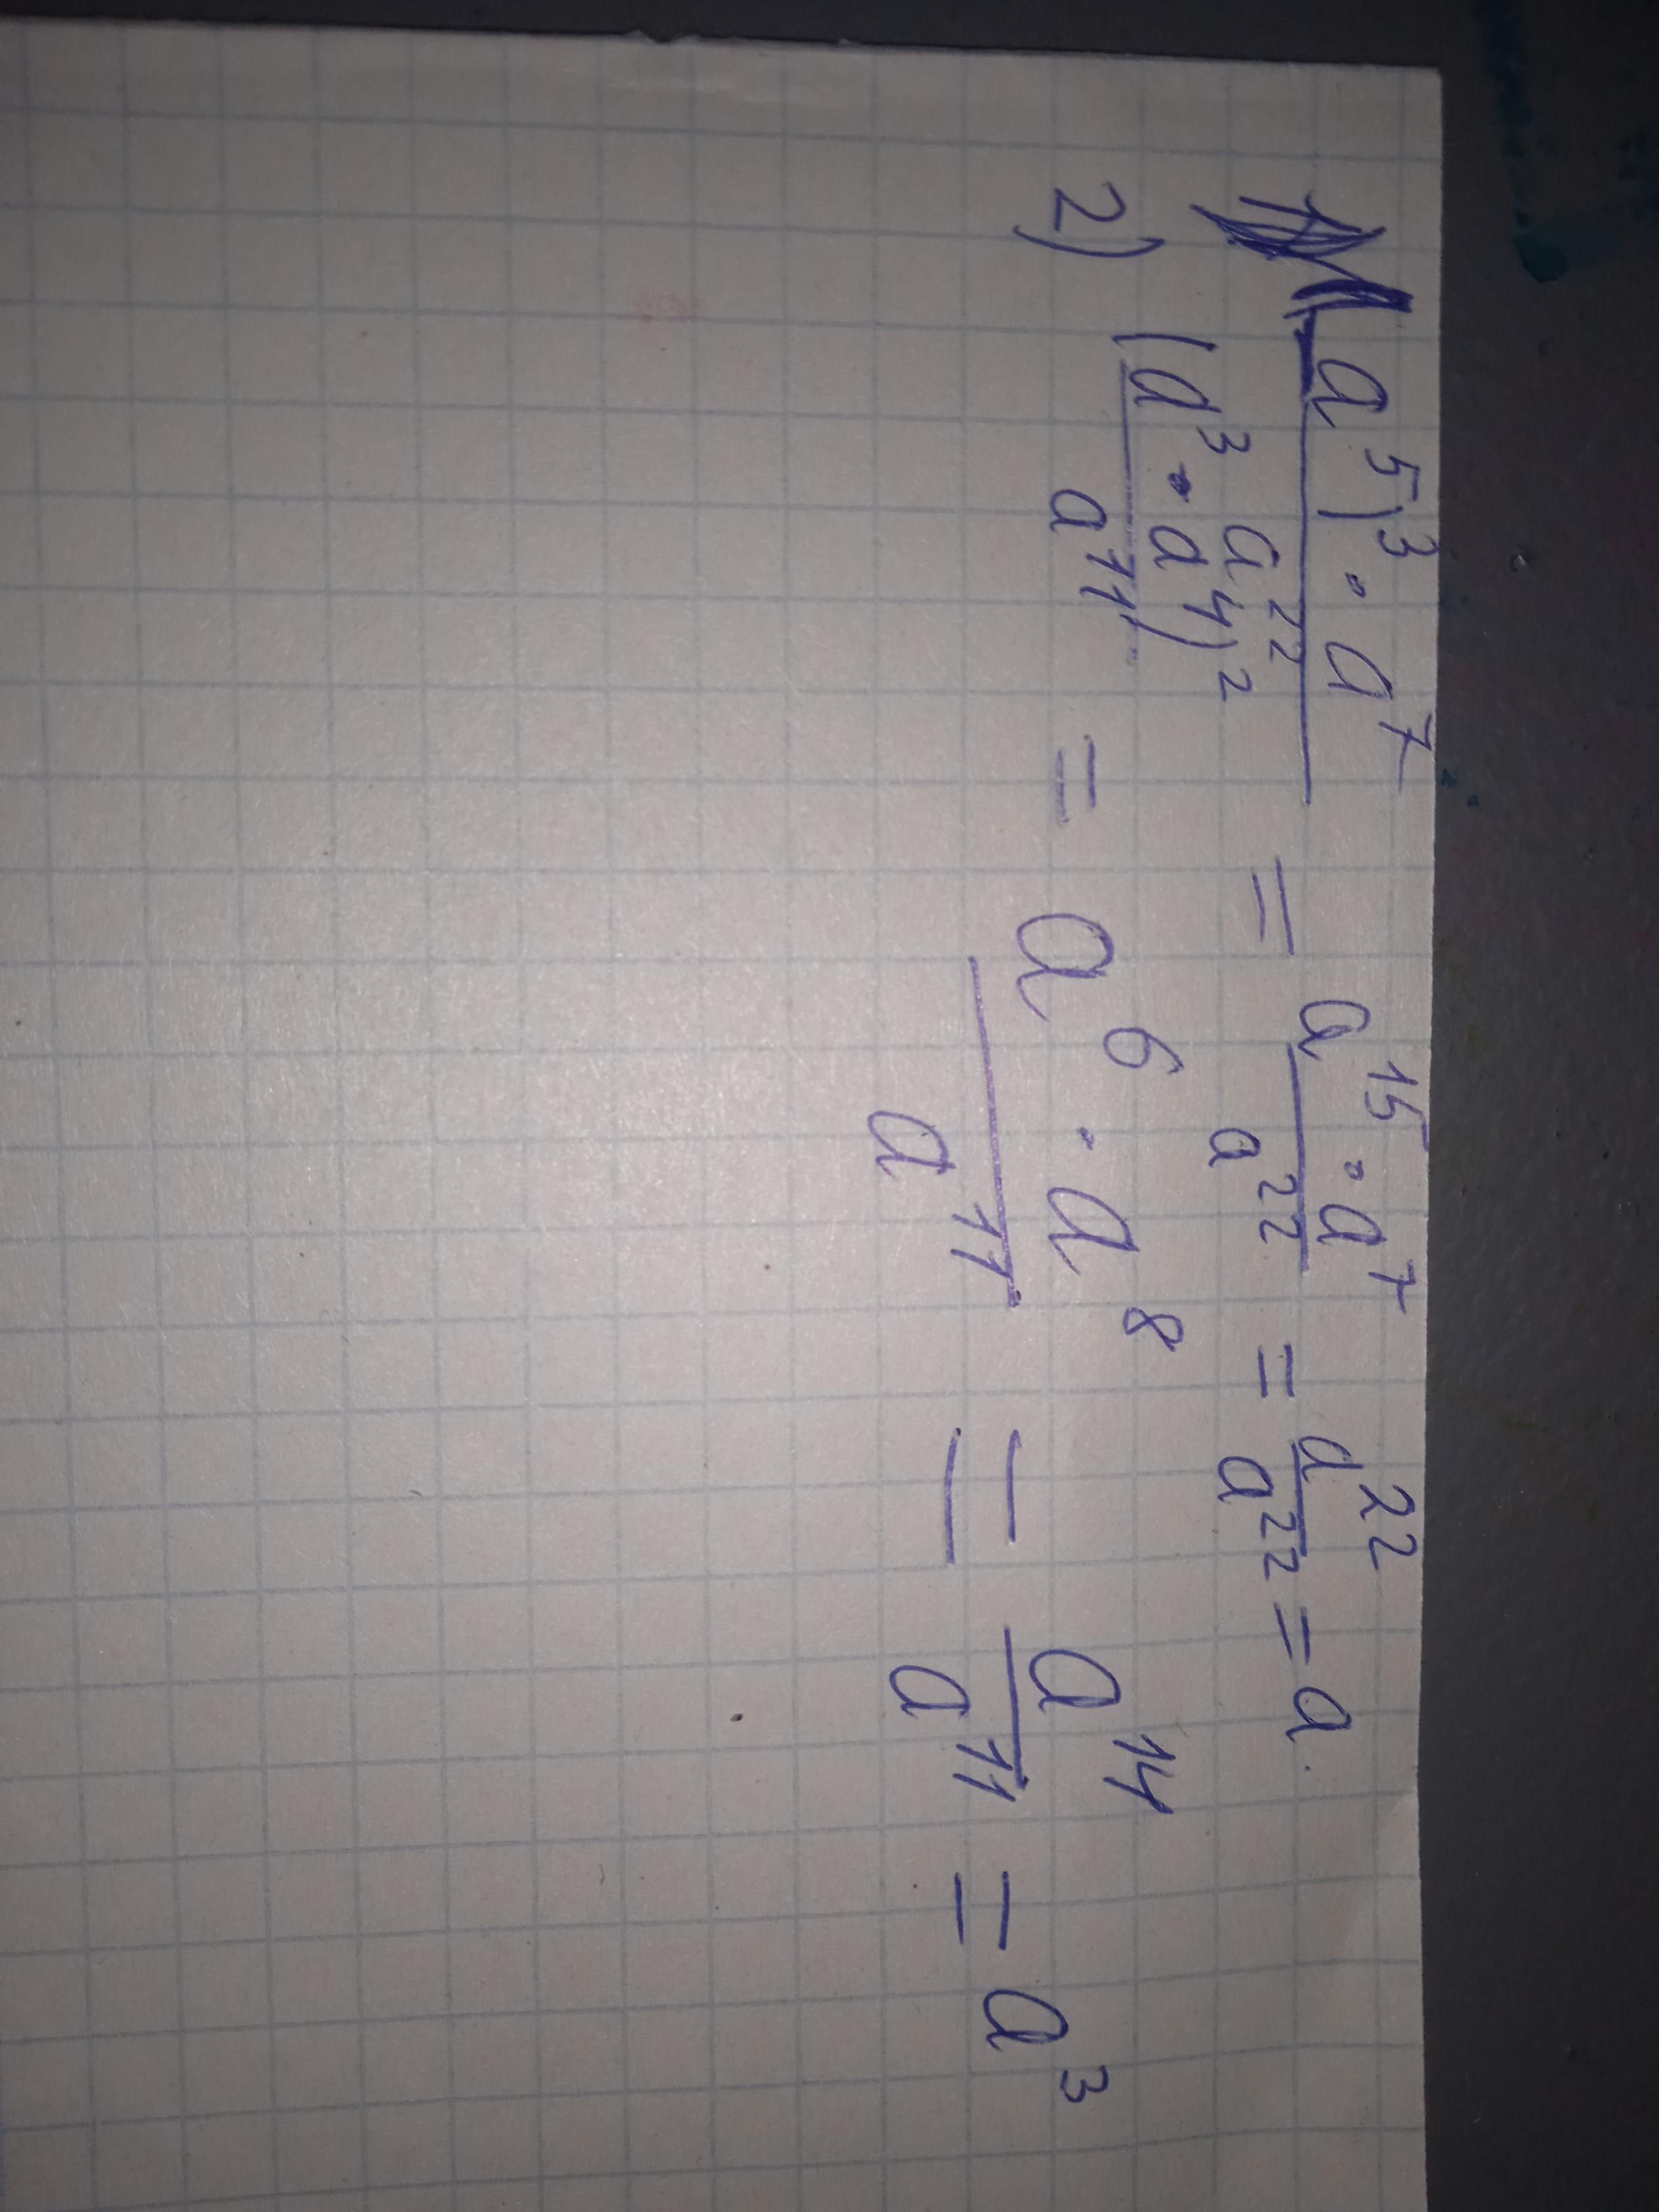 a⁵)³ · a⁷ / a²² = a¹⁵ · a⁷ / a²² = a²² / a²² = a
2) (a³ · a⁴)² / a¹¹ = a⁶ · a⁸ / a¹¹ = a¹⁴ / a¹¹ = a³